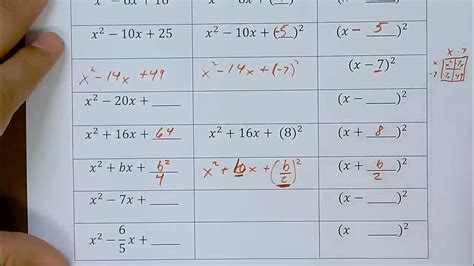 x² − 10x + 25 x² − 10x + (-5)² (x − 5)²
x² − 14x + 49 x² − 14x + (-7)² (x − 7)²
x² − 20x + ___ (x − ___)²
x² + 16x + 64 x² + 16x + (8)² (x + 8)²
x² + bx + b²/4 x² + bx + (b/2)² (x + b/2)²
x² − 7x + ___ (x − ___)²
x² − 6/5 x + ___ (x ___)²
x − 7
x x² -7x
-7 -7x 49